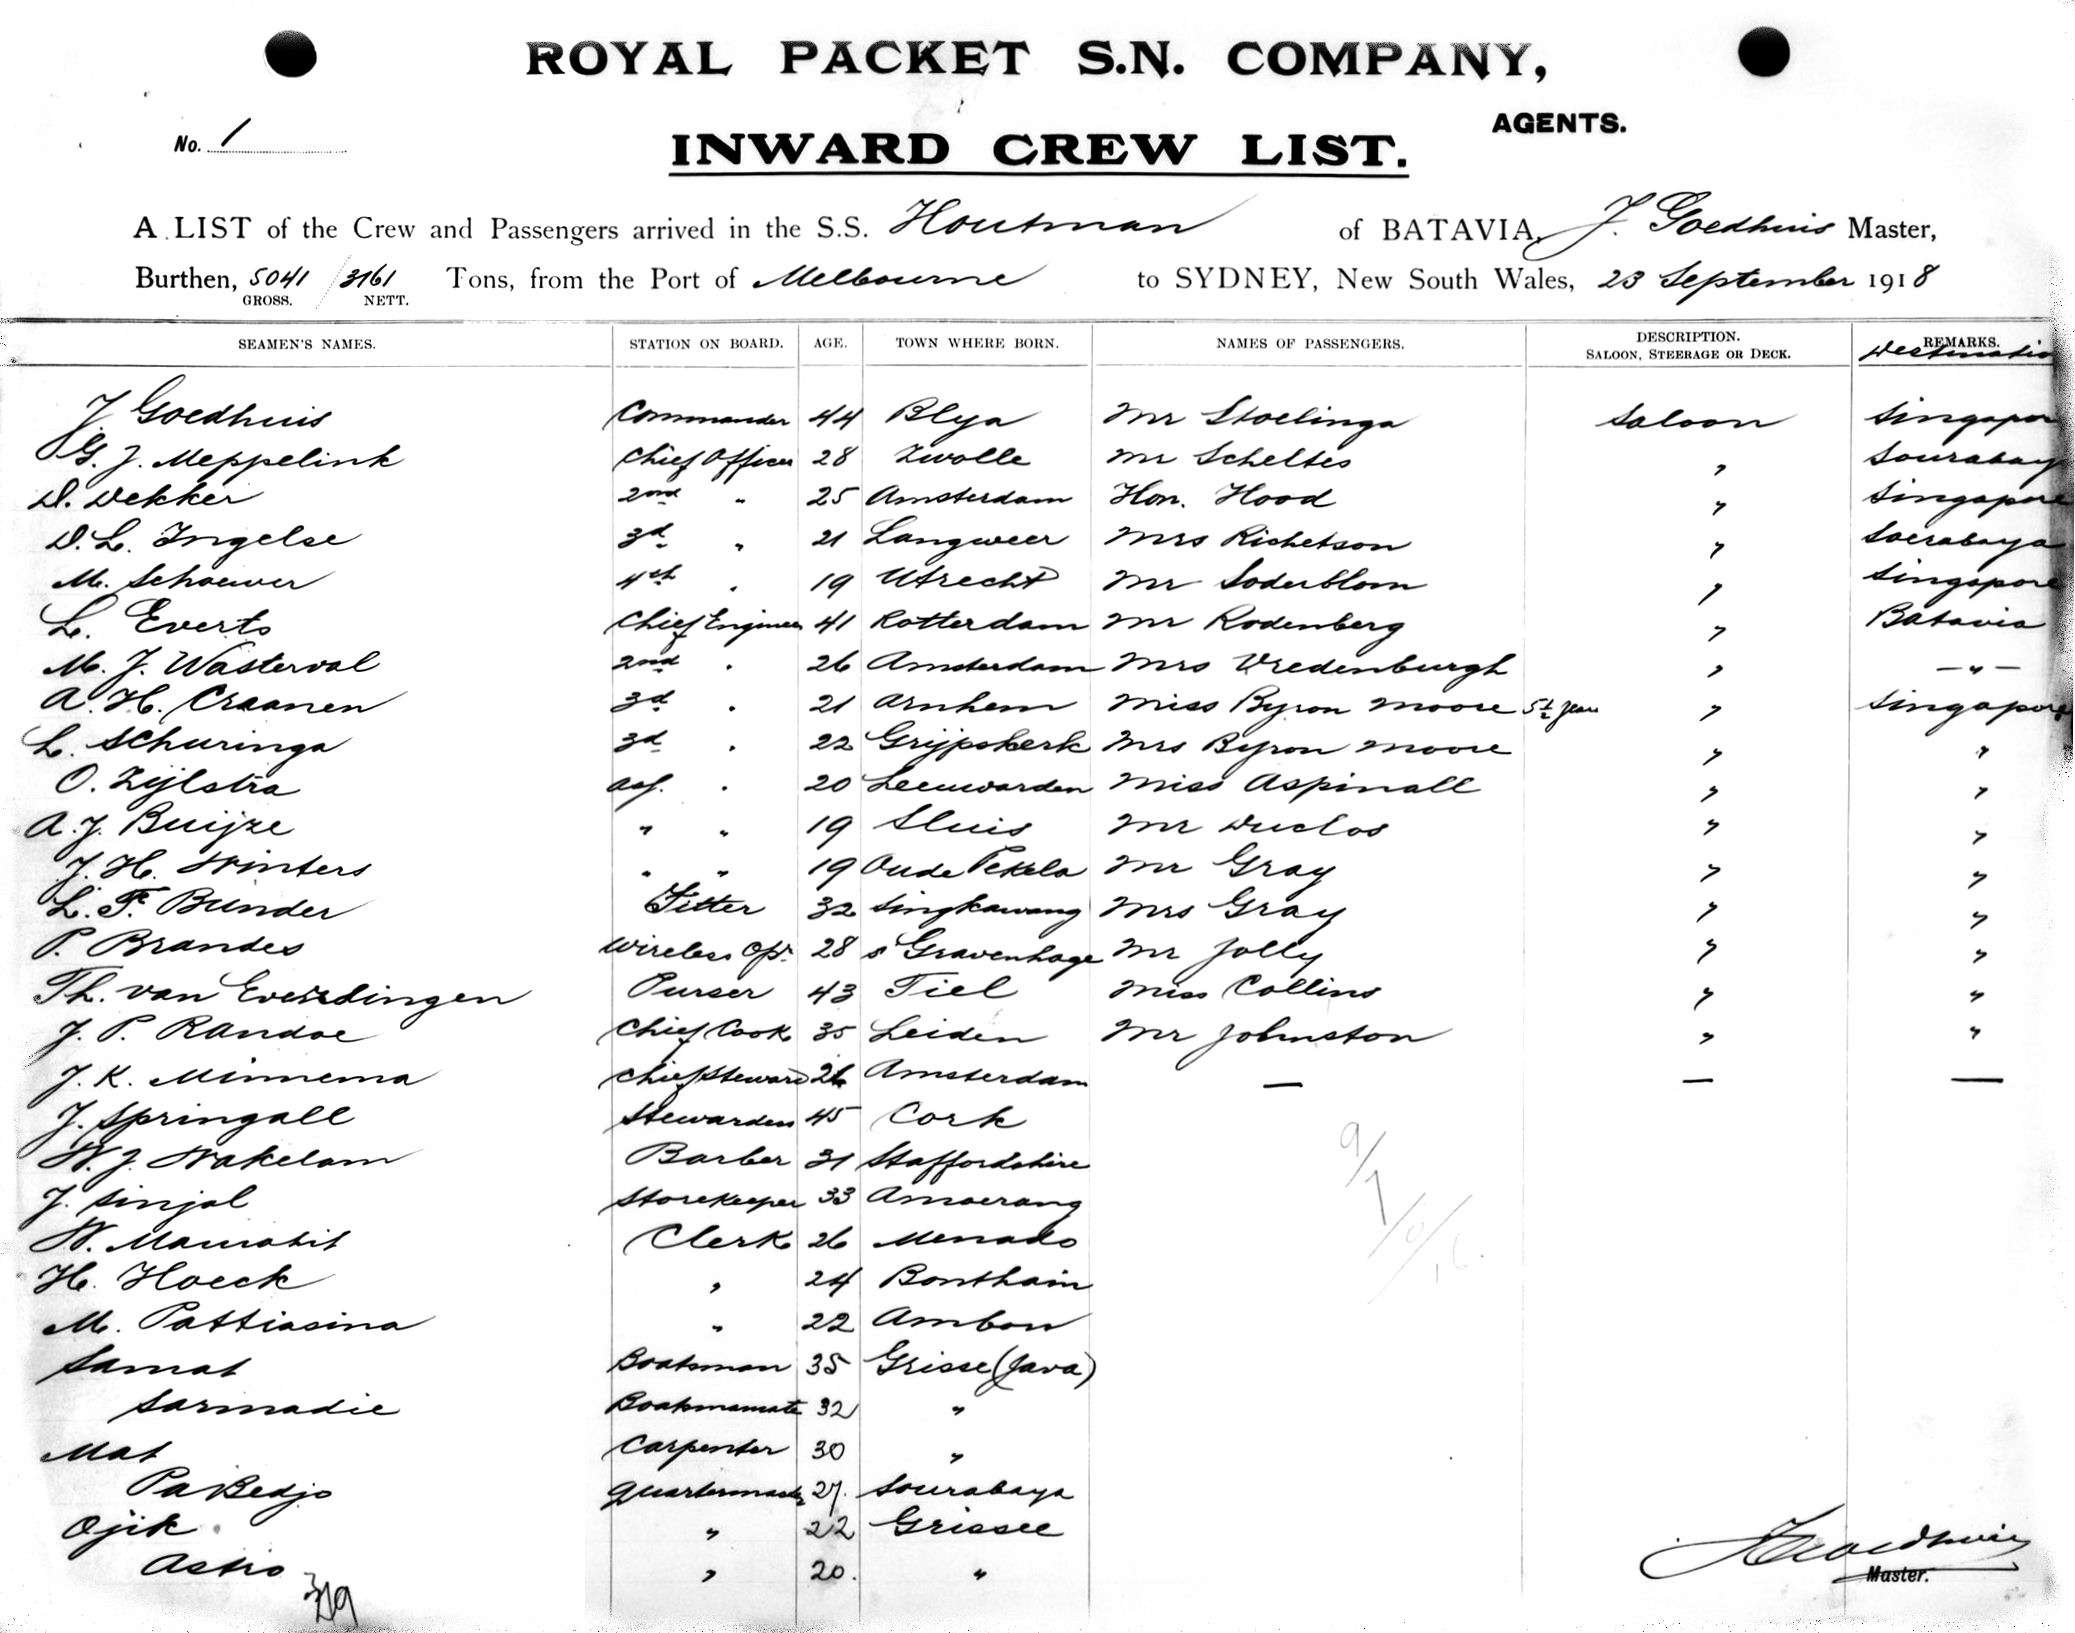 ROYAL PACKET S.N. COMPANY,
AGENTS.
No. 1
INWARD CREW LIST.
A LIST of the Crew and Passengers arrived in the S.S. Houtman of BATAVIA, J. Goedhuis Master,
Burthen, 5041 / 3161 Tons, from the Port of Melbourne to SYDNEY, New South Wales, 23 September 1918
GROSS. NETT.
SEAMEN'S NAMES. STATION ON BOARD. AGE. TOWN WHERE BORN. NAMES OF PASSENGERS. DESCRIPTION. SALOON, STEERAGE OR DECK. REMARKS. Destination
J. Goedhuis Commander 44 Blya Mr Stoelinga Saloon Singapore
G. J. Meppelink Chief Officer 28 Zwolle Mr Scheltes " Sourabaya
D. Dekker 2nd " 25 Amsterdam Hon. Hood " Singapore
D. L. Ingelse 3d " 21 Langweer Mrs Richetson " Soerabaya
M. Schouwer 4th " 19 Utrecht Mr Soderblom " Singapore
L. Everts Chief Engineer 41 Rotterdam Mr Rodenberg " Batavia
M. J. Wasterval 2nd " 26 Amsterdam Mrs Vredenburgh " — " —
A. H. Craanen 3d " 21 Arnhem Miss Byron Moore 5½ years " Singapore
L. Schuringa 3d " 22 Grijpskerk Mrs Byron Moore " "
O. Zijlstra ass. " 20 Leeuwarden Miss Aspinall " "
A. J. Buijze " " 19 Sluis Mr Duclos " "
J. H. Winters " " 19 Oude Pekela Mr Gray " "
L. F. Bunder Fitter 32 Singkawang Mrs Gray " "
P. Brandes Wireless Opr. 28 s Gravenhage Mr Jolly " "
Th. van Everdingen Purser 43 Tiel Miss Collins " "
J. P. Randoe Chief Cook 35 Leiden Mr Johnston " "
J. K. Minnema Chief Steward 26 Amsterdam — — —
J. Springall Stewardess 45 Cork
W. J. Wakelam Barber 31 Staffordshire
J. Sinjal Storekeeper 33 Amoerang
W. Mamahit Clerk 26 Menado
H. Hoeck " 24 Bonthain
M. Pattiasina " 22 Ambon
Samat Boatsman 35 Grisse (Java)
Sarmadie Boatsmamate 32 "
Mat Carpenter 30 "
Pa Bedjo Quartermaster 27. Sourabaya
Ojik " 22 Grissee
Astro " 20. "
J Goedhuis
Master.